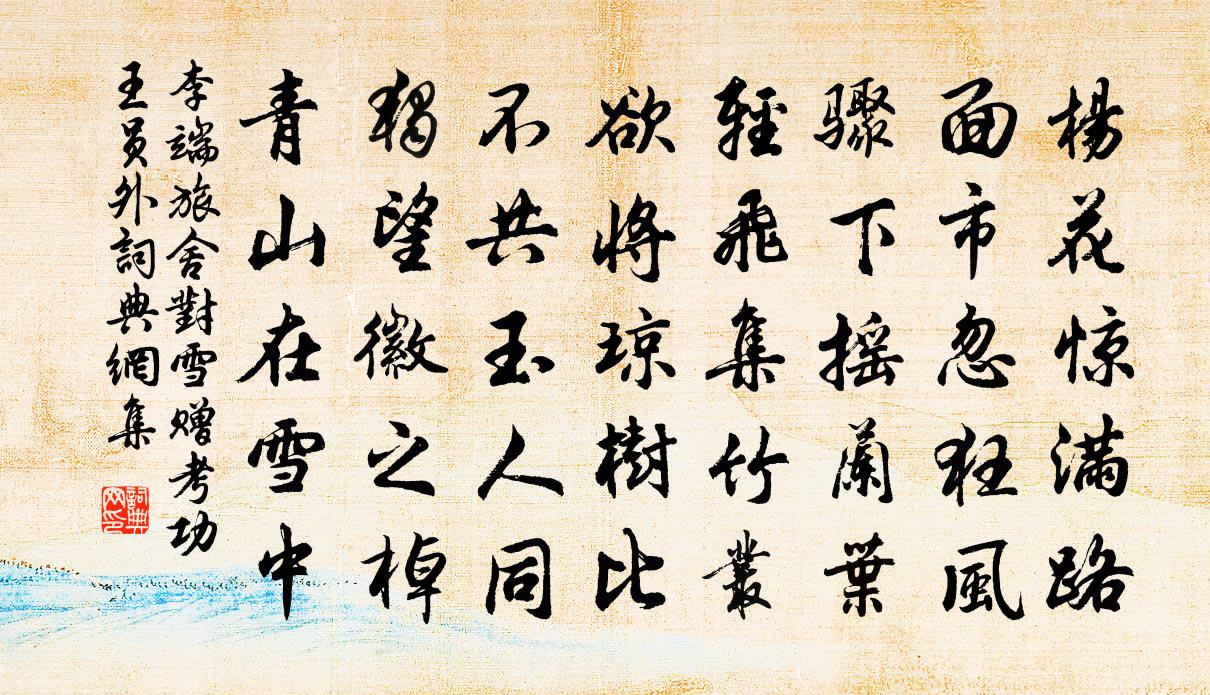 楊花惊滿路
面市忽狂風
驟下摇蘭葉
輕飛集竹叢
欲將琼樹比
不共玉人同
獨望徽之棹
青山在雪中
李端旅舍對雪贈考功
王員外詞典網集
詞典
网印